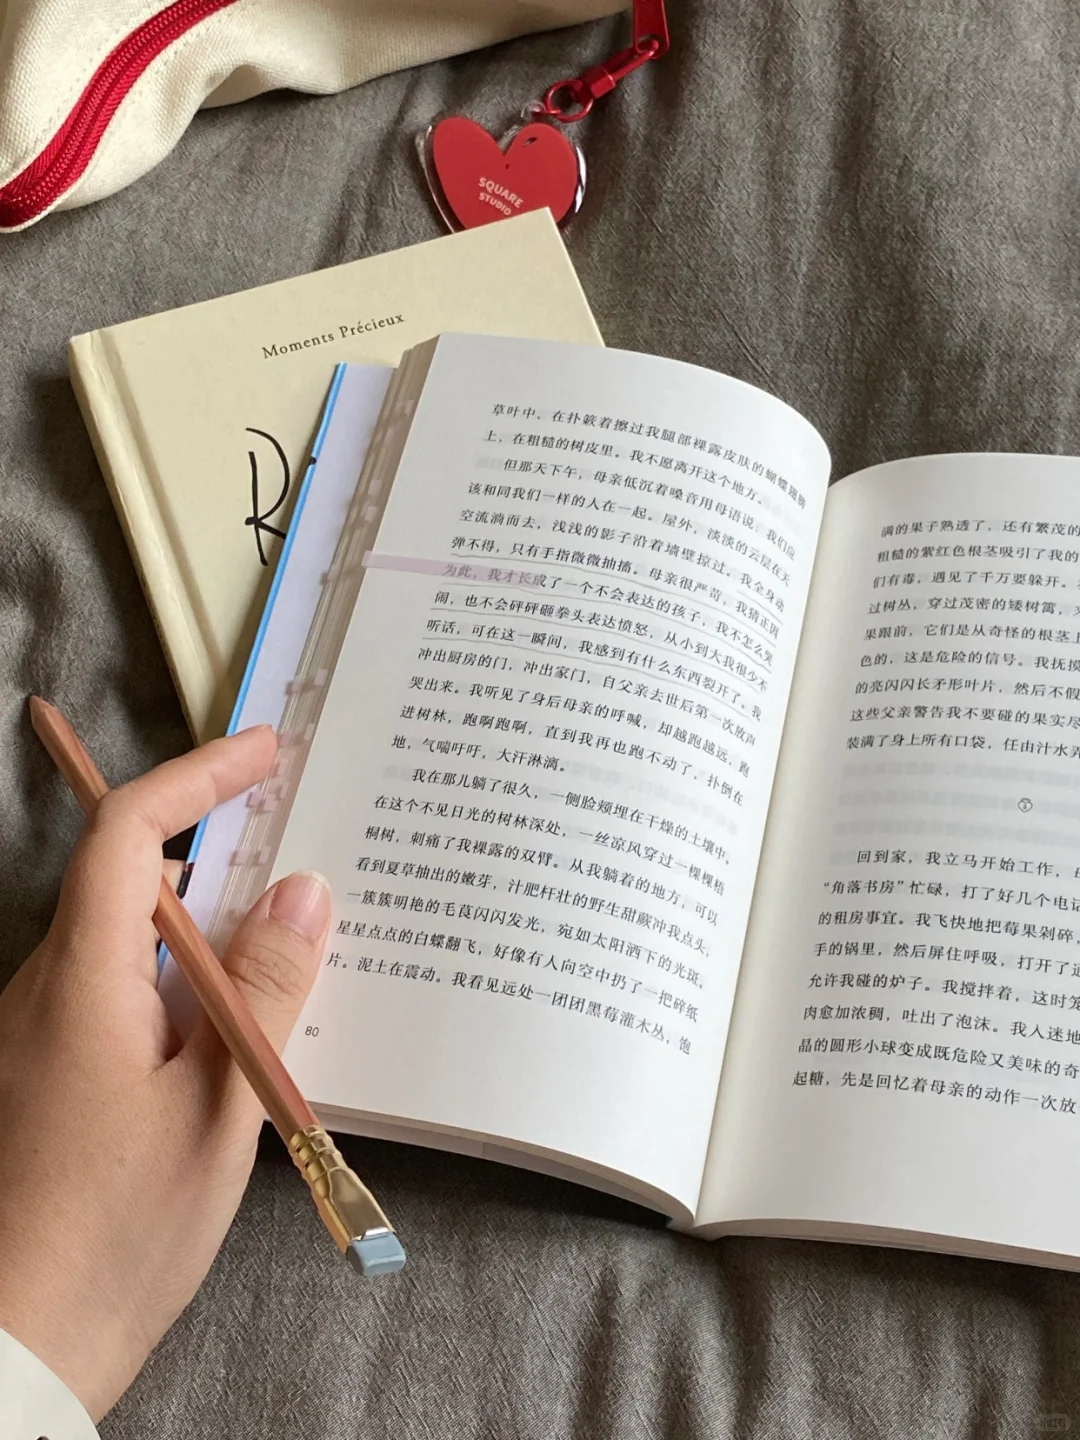 SQUARE
STUDIO
Moments Précieux
R
草叶中，在扑簌着擦过我腿部裸露皮肤的蝴蝶翅膀
上，在粗糙的树皮里。我不愿离开这个地方。
但那天下午，母亲低沉着嗓音用母语说：我们应
该和同我们一样的人在一起。屋外，淡淡的云层在天
空流淌而去，浅浅的影子沿着墙壁掠过。我全身动
弹不得，只有手指微微抽搐。母亲很严苛，我猜正因
为此，我才长成了一个不会表达的孩子，我不怎么哭
闹，也不会砰砰砸拳头表达愤怒，从小到大我很少不
听话，可在这一瞬间，我感到有什么东西裂开了。我
冲出厨房的门，冲出家门，自父亲去世后第一次放声
哭出来。我听见了身后母亲的呼喊，却越跑越远，跑
进树林，跑啊跑啊，直到我再也跑不动了，扑倒在
地，气喘吁吁，大汗淋漓。
我在那儿躺了很久，一侧脸颊埋在干燥的土壤中。
在这个不见日光的树林深处，一丝凉风穿过一棵棵梧
桐树，刺痛了我裸露的双臂。从我躺着的地方，可以
看到夏草抽出的嫩芽，汁肥杆壮的野生甜蕨冲我点头，
一簇簇明艳的毛茛闪闪发光，宛如太阳洒下的光斑。
星星点点的白蝶翻飞，好像有人向空中扔了一把碎纸
片。泥土在震动。我看见远处一团团黑莓灌木丛，饱
80
满的果子熟透了，还有繁茂的
粗糙的紫红色根茎吸引了我的
们有毒，遇见了千万要躲开。
过树丛，穿过茂密的矮树篱，
果跟前，它们是从奇怪的根茎上
色的，这是危险的信号。我抚摸
的亮闪闪长矛形叶片，然后不假
这些父亲警告我不要碰的果实尽
装满了身上所有口袋，任由汁水弄
回到家，我立马开始工作，母
“角落书房”忙碌，打了好几个电话
的租房事宜。我飞快地把莓果剁碎，
手的锅里，然后屏住呼吸，打开了
允许我碰的炉子。我搅拌着，这时
肉愈加浓稠，吐出了泡沫。我入迷地
晶的圆形小球变成既危险又美味的奇
起糖，先是回忆着母亲的动作一次放